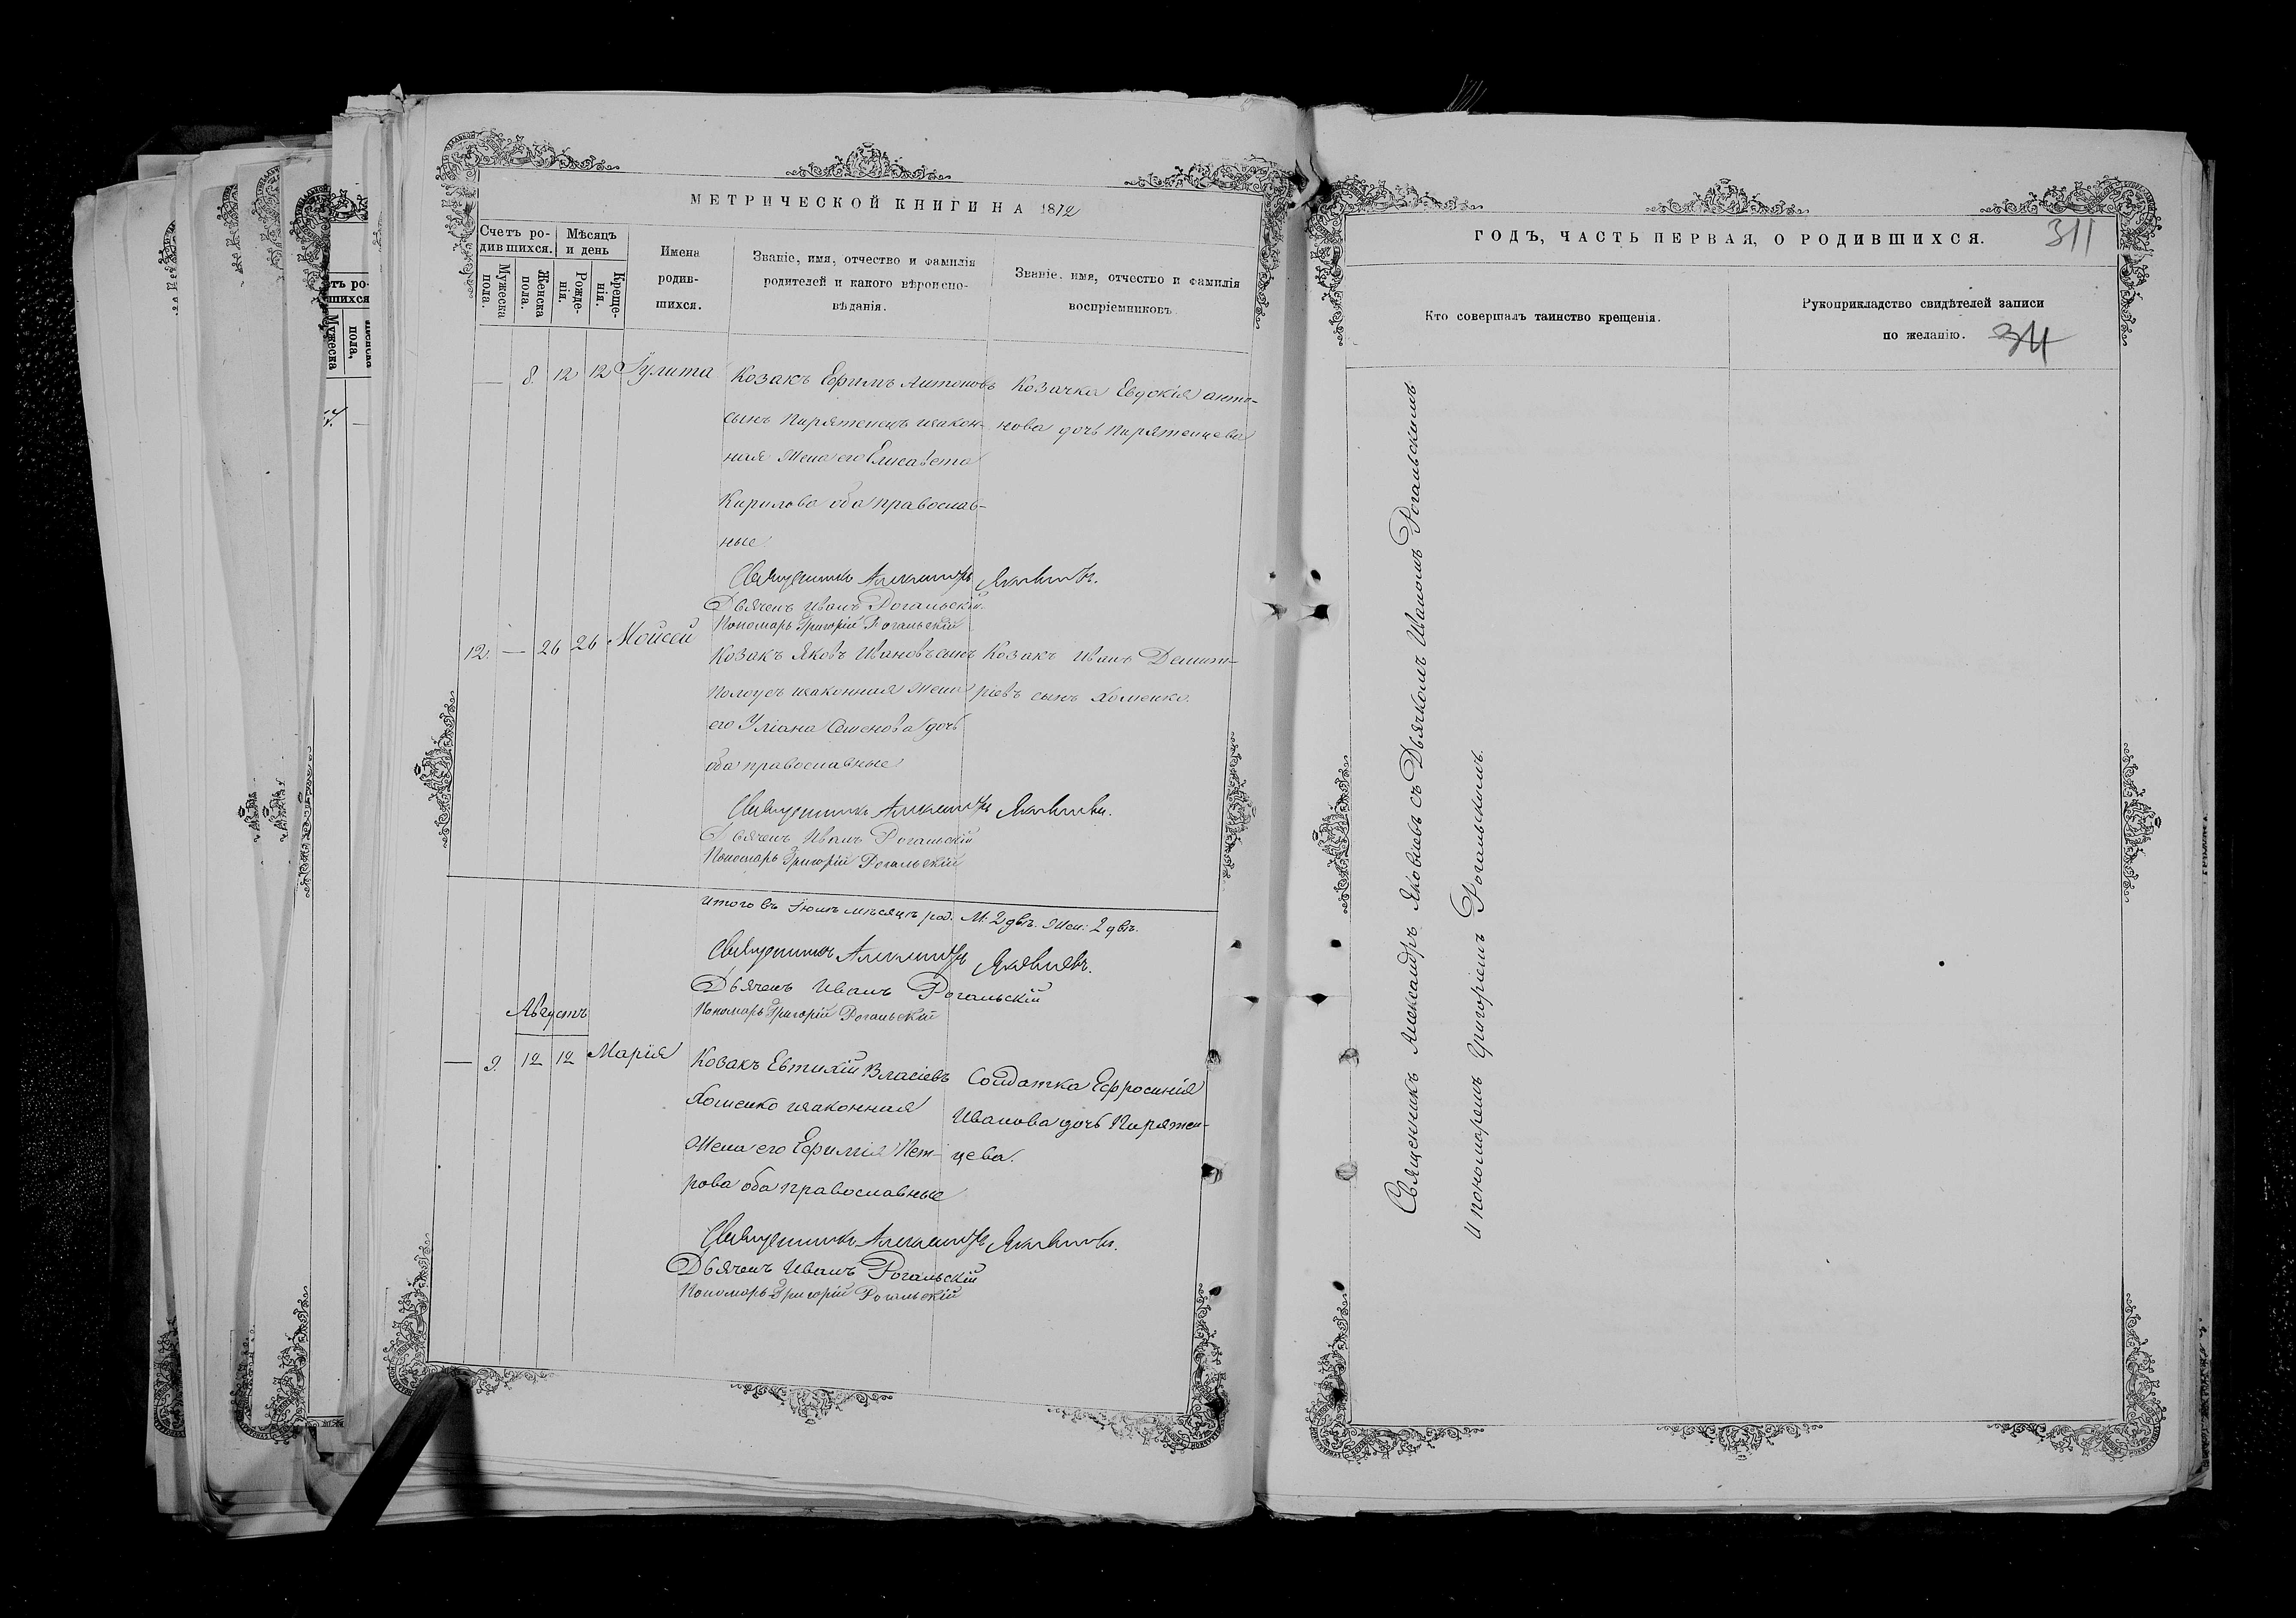 МЕТРИЧЕСКОЙ КНИГИ НА 1872
Счетъ ро-
дившихся.
Мѣсяцъ
и день
Мужеска
пола.
Женска
пола.
Рожде-
нія.
Креще-
нія.
Имена
родив-
шихся.
Званіе, имя, отчество и фамилія
родителей и какого вѣроиспо-
вѣданія.
Званіе, имя, отчество и фамилія
воспріемниковъ.
— 8. 12 12 Іулита
Козакъ Ефримъ Антоновъ
сынъ Пирятенецъ изакон-
ная жена его Елисавета
Кирилова оба православ-
ные
Козачка Евдокія Анто-
нова дочь Пирятенцева
Священникъ Александръ Яковлевъ.
Дьячекъ Иванъ Рогальскій
Пономарь Григорій Рогальскій
12. — 26 26 Моисей
Козакъ Яковъ Ивановъ сынъ
Полоусъ изаконная жена
его Уліана Семенова дочь
оба православные
Козакъ Иванъ Демит-
ріевъ сынъ Хоменко.
Священникъ Александръ Яковлевъ.
Дьячекъ Иванъ Рогальскій
Пономарь Григорій Рогальскій
Итого въ Іюлѣ мѣсяцѣ род. М. 2 двѣ. Жен: 2 двѣ.
Священникъ Александръ Яковлевъ.
Дьячекъ Иванъ Рогальскій
Пономарь Григорій Рогальскій
Августъ
— 9. 12 12 Марія
Козакъ Евтихій Власіевъ
Хоменко изаконная
жена его Ефимія Пет-
рова оба православные
Солдатка Ефросинія
Иванова дочь Пирятен-
цева.
Священникъ Александръ Яковлевъ.
Дьячекъ Иванъ Рогальскій
Пономарь Григорій Рогальскій
ГОДЪ, ЧАСТЬ ПЕРВАЯ, О РОДИВШИХСЯ.
311
Кто совершалъ таинство крещенія.
Рукоприкладство свидѣтелей записи
по желанію.
Священникъ Александръ Яковлевъ съ Дьячкомъ Иваномъ Рогальскимъ
И пономаремъ Григоріемъ Рогальскимъ.
тъ ро-
шихся
Мужеска
пола,